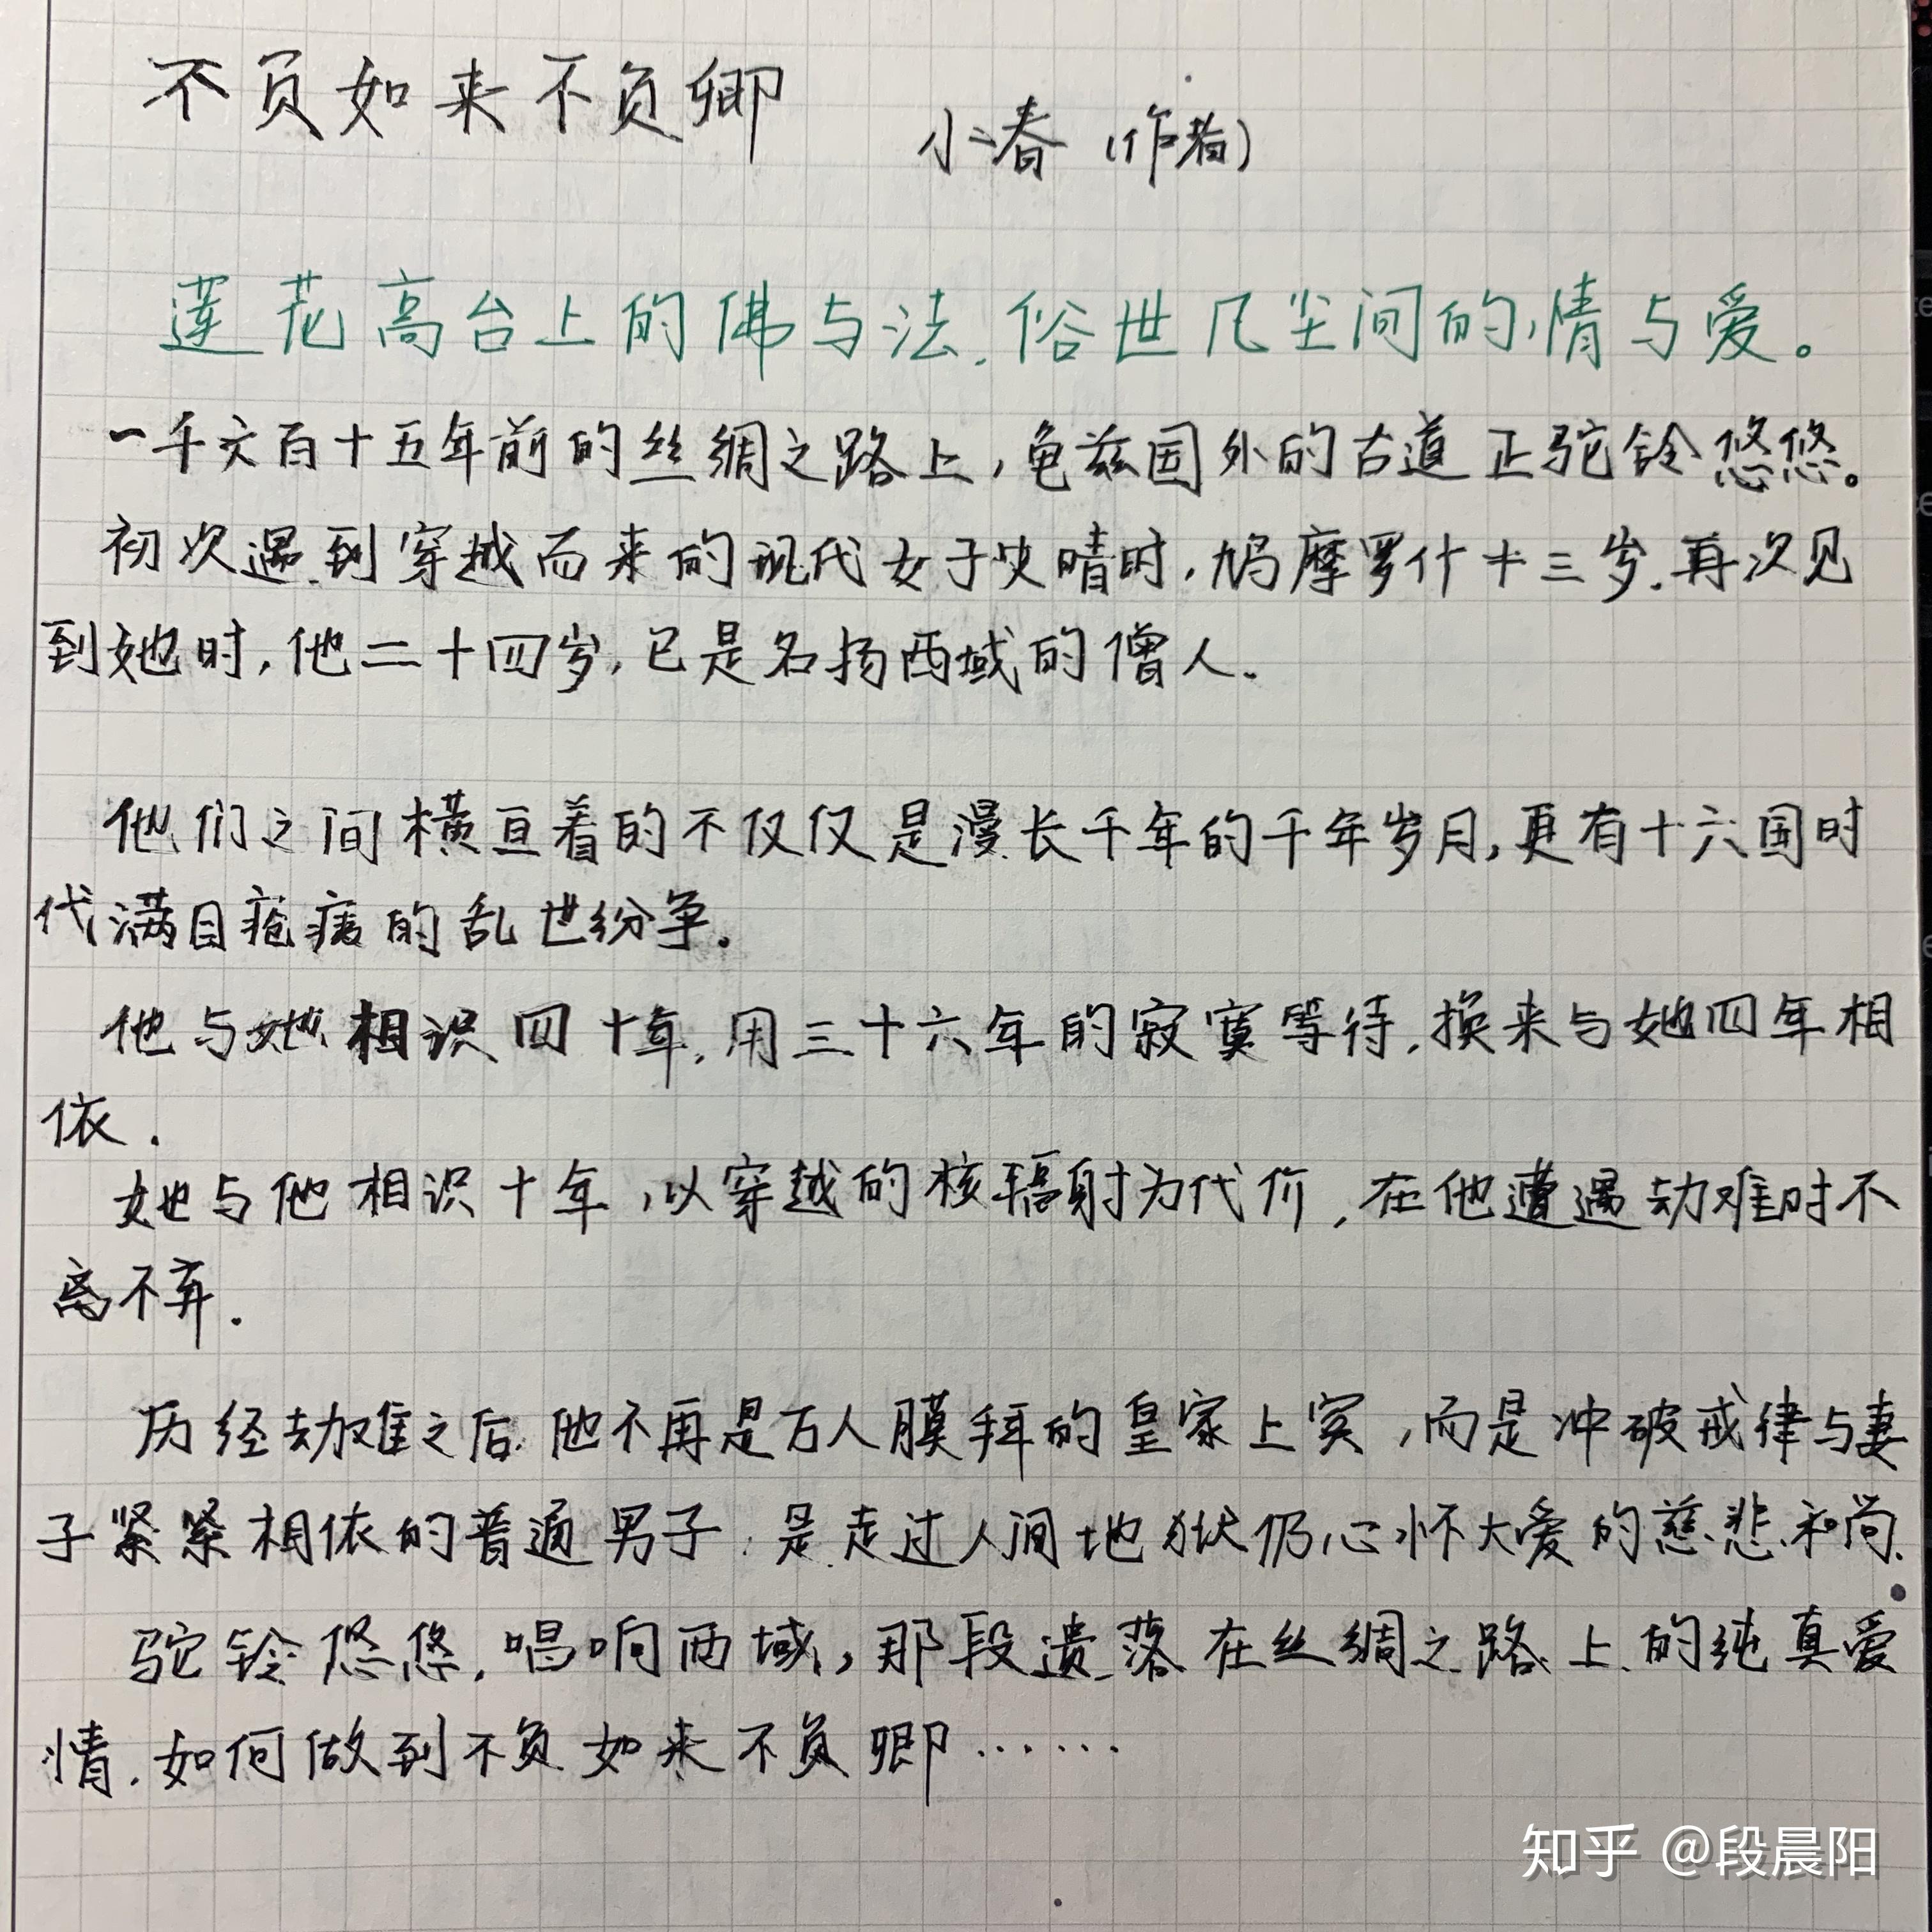 不负如来不负卿
小春(作者)
莲花高台上的佛与法,俗世凡尘间的情与爱。
一千六百十五年前的丝绸之路上,龟兹国外的古道正驼铃悠悠。
初次遇到穿越而来的现代女子史晴时,鸠摩罗什十三岁.再次见
到她时,他二十四岁,已是名扬西域的僧人.
他们之间横亘着的不仅仅是漫长千年的千年岁月,更有十六国时
代满目疮痍的乱世纷争.
他与她相识四十年,用三十六年的寂寞等待,换来与她四年相
依.
她与他相识十年,以穿越的核辐射为代价,在他遭遇劫难时不
离不弃.
历经劫难之后,他不再是万人膜拜的皇家上宾,而是冲破戒律与妻
子紧紧相依的普通男子.是走过人间地狱仍心怀大爱的慈悲和尚.
驼铃悠悠,唱响西域,那段遗落在丝绸之路上的纯真爱
情.如何做到不负如来不负卿……
知乎 @段晨阳